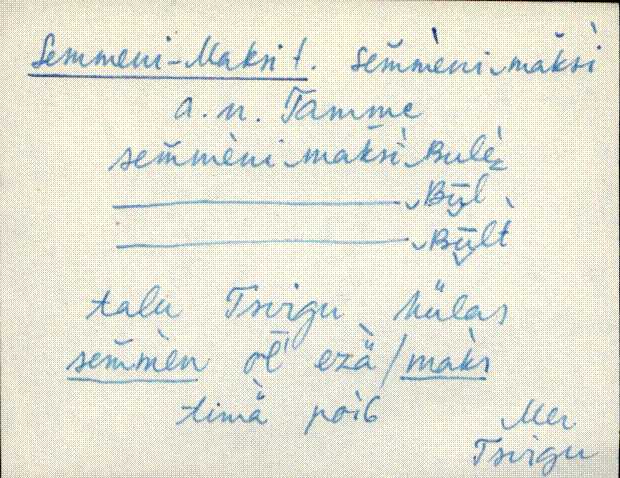 Semmeni-Maksi t. sem̆mèni‿mak̆sì
a. n. Tamme
sem̆mèni‿mak̆sì‿Bulè
‿Bül
‿Bült
talu Tsirgu külas
sem̆mèn ol'l' ezä / maks
timä poiG
Mer
Tsirgu